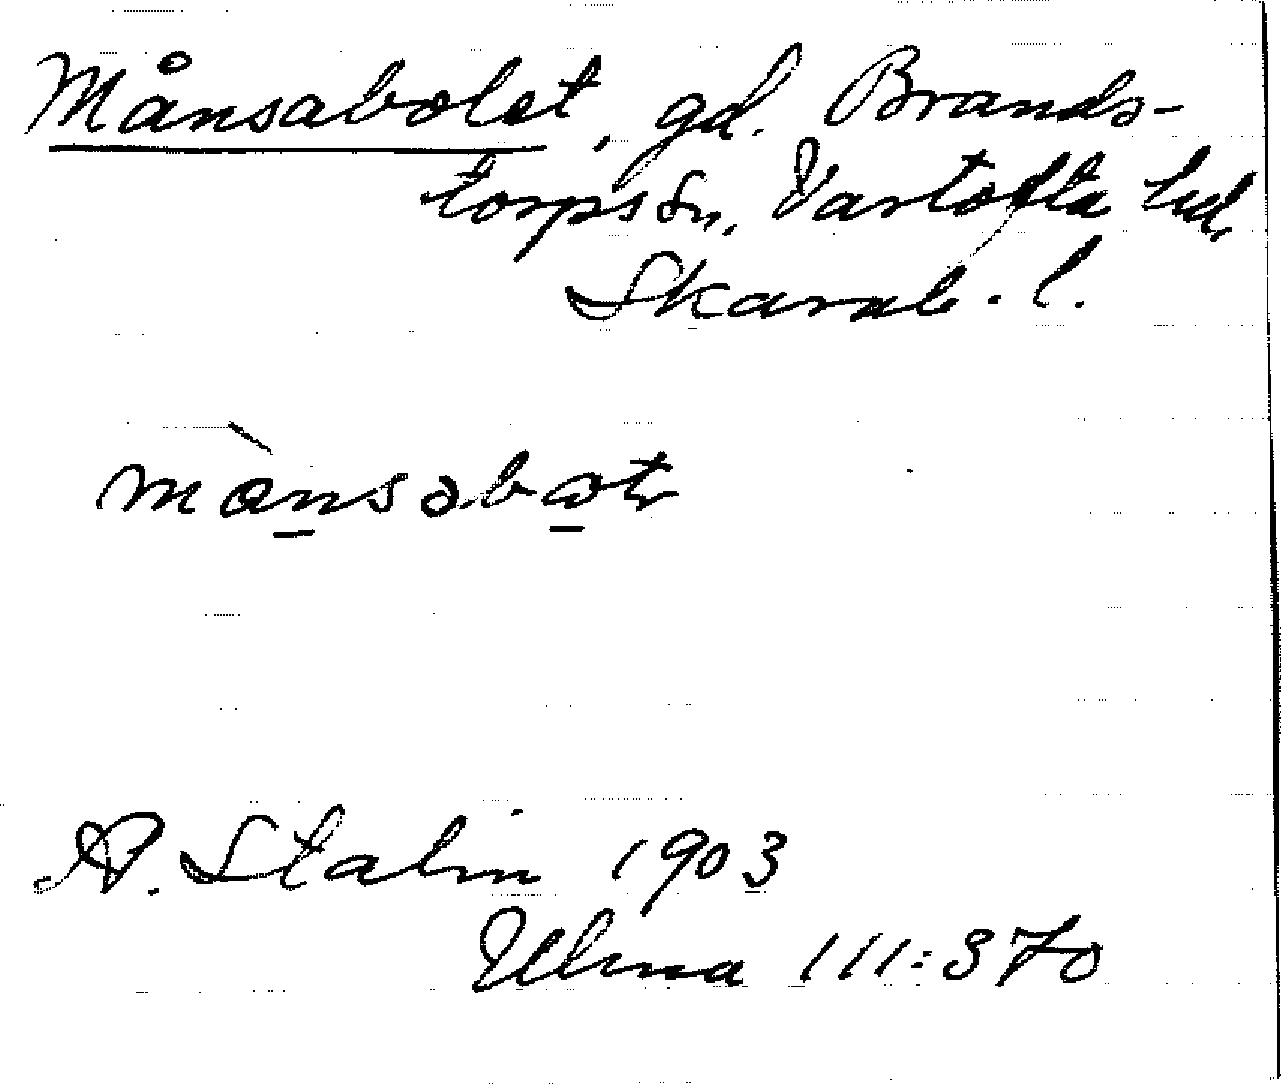 Månsabolet, gd. Brands-
torps sn, Vartofta hd,
Skarab. l.
månsabot
A. Stalin 1903
Ulma 111:370